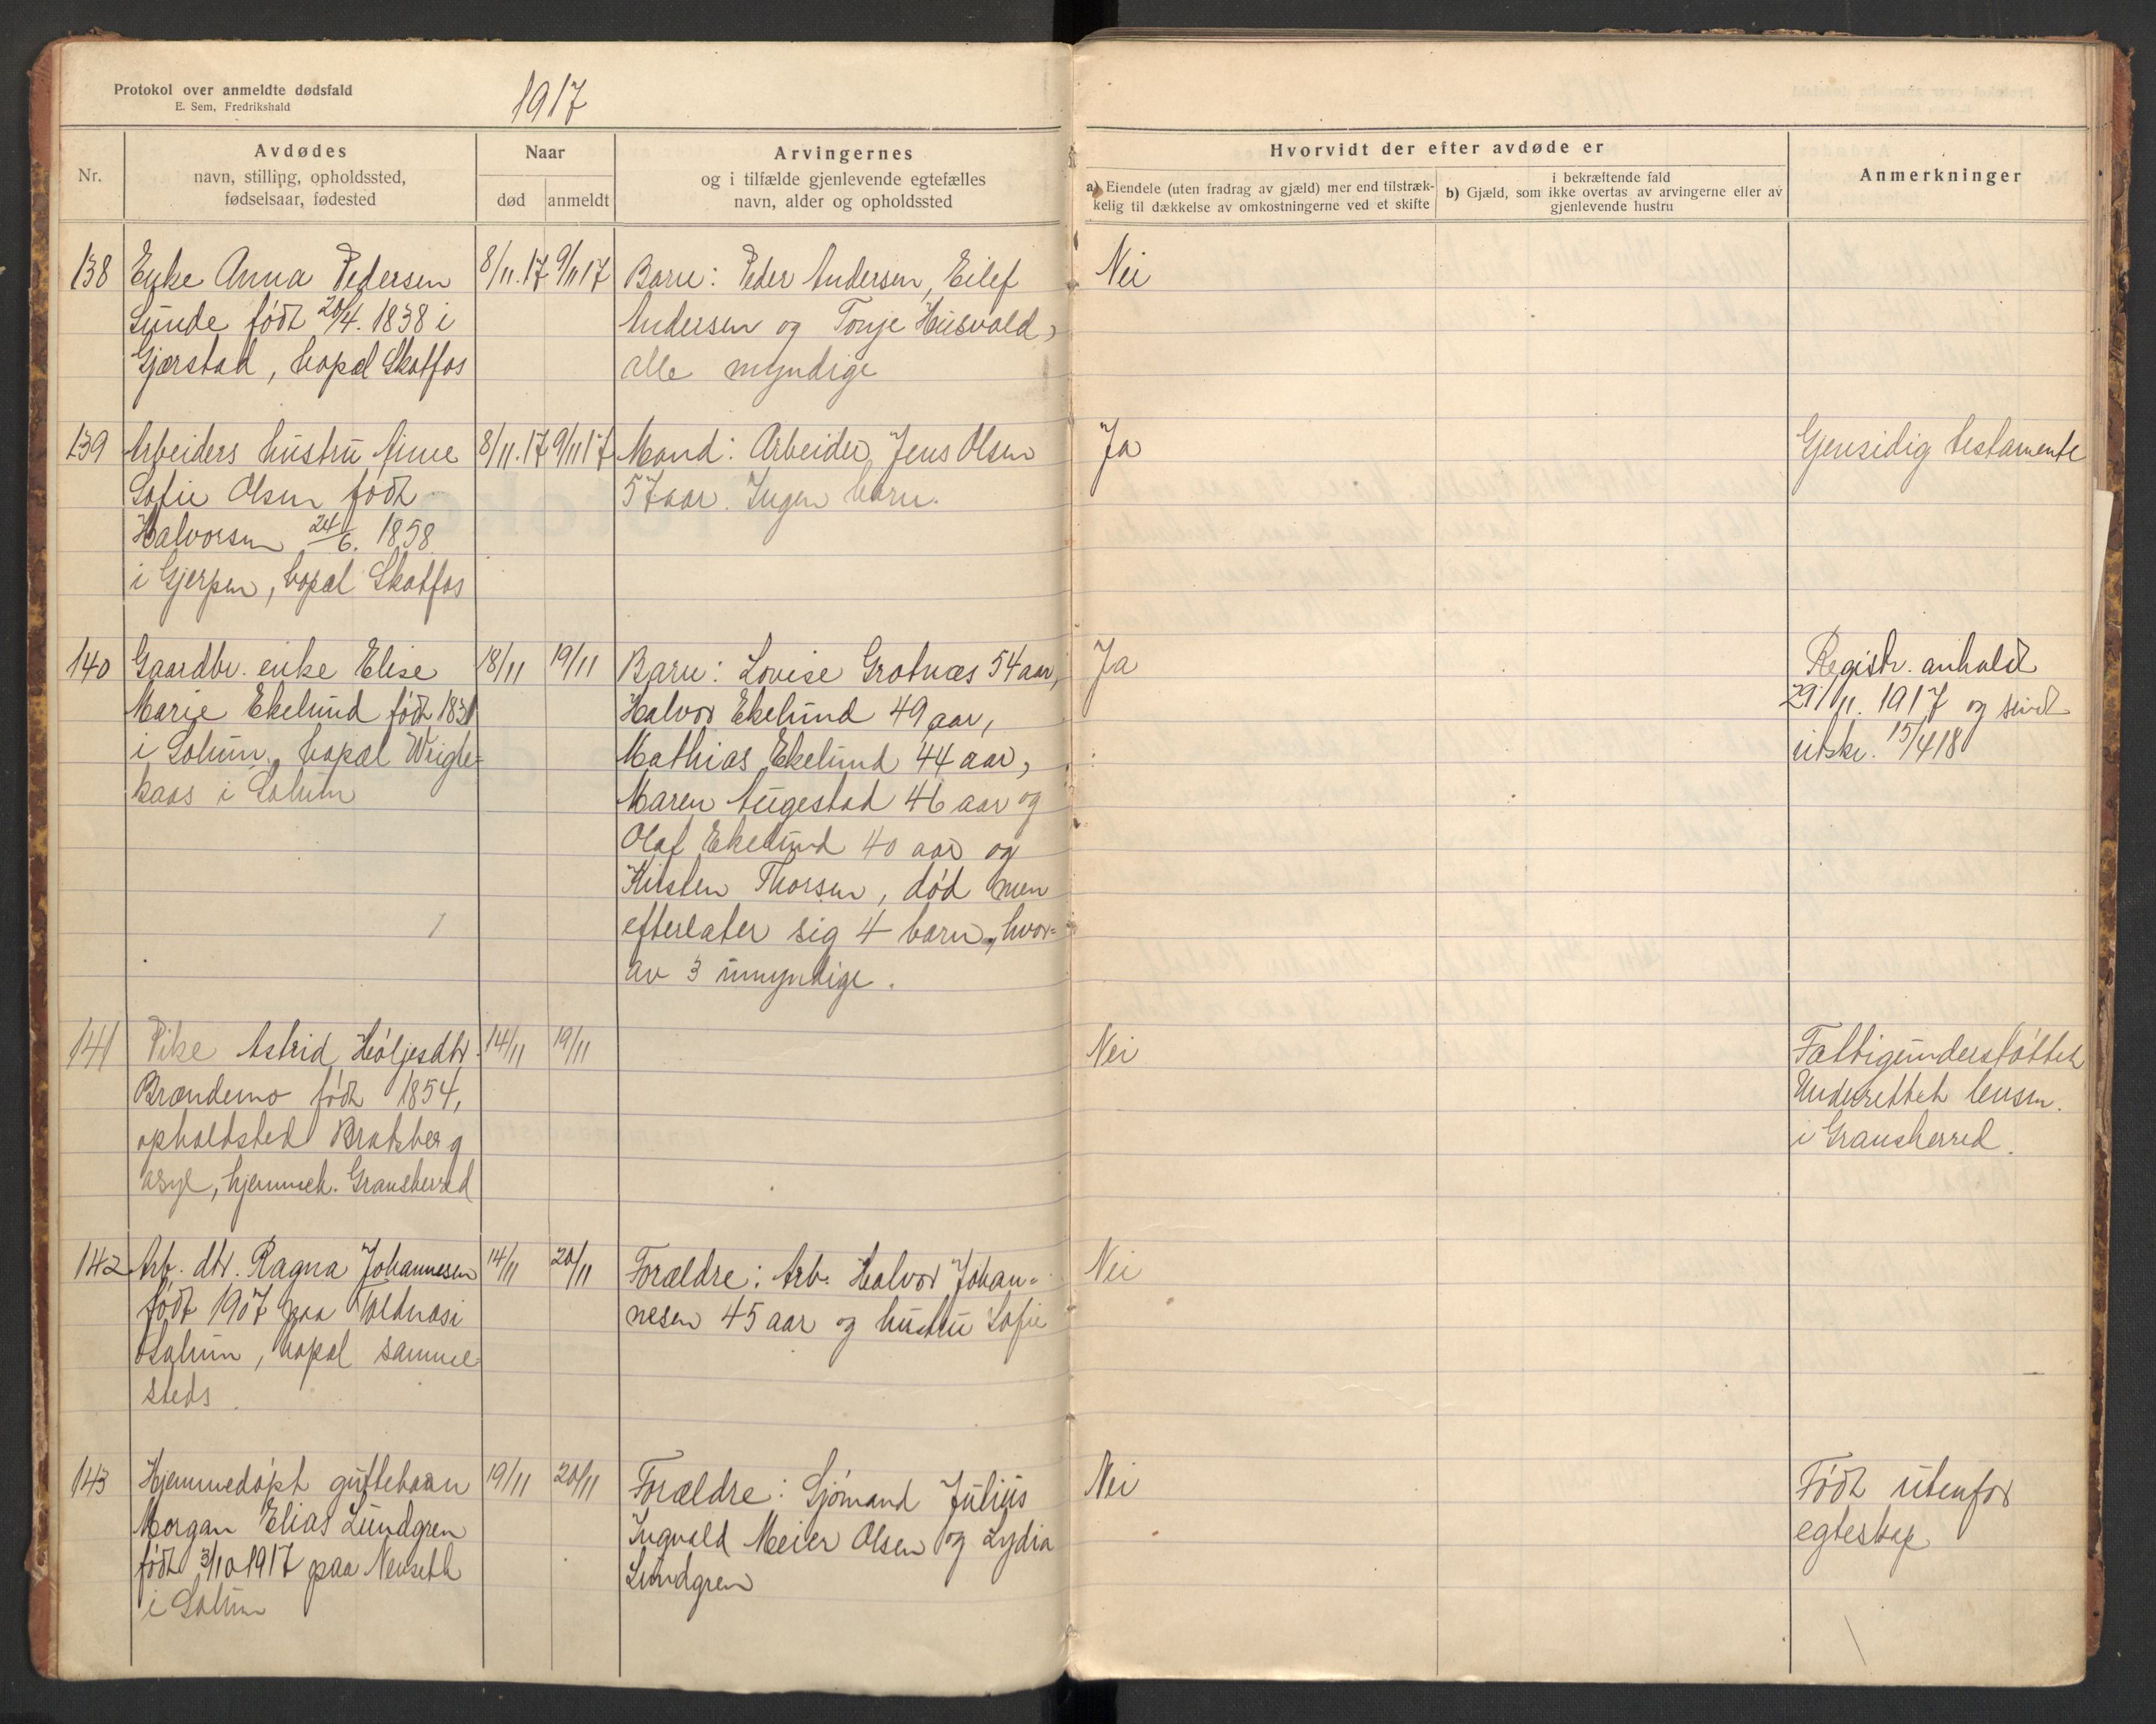 Protokol over anmeldte dødsfald
E. Sem, Fredrikshald
1917
Nr.
Avdødes
navn, stilling, opholdssted,
fødselsaar, fødested
Naar
død
anmeldt
Arvingernes
og i tilfælde gjenlevende egtefælles
navn, alder og opholdssted
Hvorvidt der efter avdøde er
a) Eiendele (uten fradrag av gjæld) mer end tilstræk-
kelig til dækkelse av omkostningerne ved et skifte
i bekræftende fald
b) Gjæld, som ikke overtas av arvingerne eller av
gjenlevende hustru
Anmerkninger
138
Enke Anna Pedersen
Lunde født 20/4. 1838 i
Gjerstad, bopæl Skotfos
8/11.17
9/11 17
Barn: Peder Andersen, Eilef
Andersen og Tonje Husvold,
alle myndige
Nei
139
Arbeiders hustru Anne
Sofie Olsen født
Halvorsen 24/6. 1858
i Gjerpen, bopæl Skotfos
8/11.17
9/11 17
Mand: Arbeider Jens Olsen
57 aar. Ingen barn.
Ja
Gjensidig testamente
140
Gaardbr. enke Elise
Marie Ekelund født 1831
i Solum, bopæl
kaas i Solum
18/11
19/11
Barn: Lovise Grotnæs 54 aar,
Halvor Ekelund 49 aar,
Mathias Ekelund 44 aar,
Maren Augestad 46 aar og
Olaf Ekelund 40 aar og
Kirsten Thorsen, død men
efterlater sig 4 barn, hvor-
av 3 umyndige.
Ja
Registr. anholdt
29/11. 1917 og sendt
utskr. 15/4 18
141
Pike Astrid Høljesdtr.
Brændemo født 1854,
opholdsted Bratsberg
asyl, hjemmeh. Gransherred
14/11
19/11
Nei
Fattigunderstøttet
Underrettet lensm.
i Gransherred.
142
Arb. dtr. Ragna Johannesen
født 1907 paa Voldnes i
Solum, bopæl samme-
steds.
14/11
20/11
Forældre: Arb. Halvor Johan-
nesen 45 aar og hustru Sofie
Nei
143
Hjemmedøpt guttebarn
Morgan Elias Lundgren
født 3/10 1917 paa Nenseth
i Solum
19/11
20/11
Forældre: Sjømand Julius
Ingvald Meier Olsen og Lydia
Lundgren
Nei
Født utenfor
egteskap